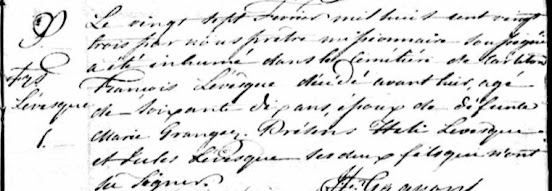 9 Le vingt sept Fevrier mil huit cent vingt
trois par nous prêtre missionnaire soussigné
a été inhumé dans le Cimétière de
Frs François Lévêsque décédé avant hier, agé
Lévesque de soixante dix ans, epoux de défunte
1. Marie Granger. Présens Levesque
et Jules Lévesque ses deux fils qui n'ont
su signer.